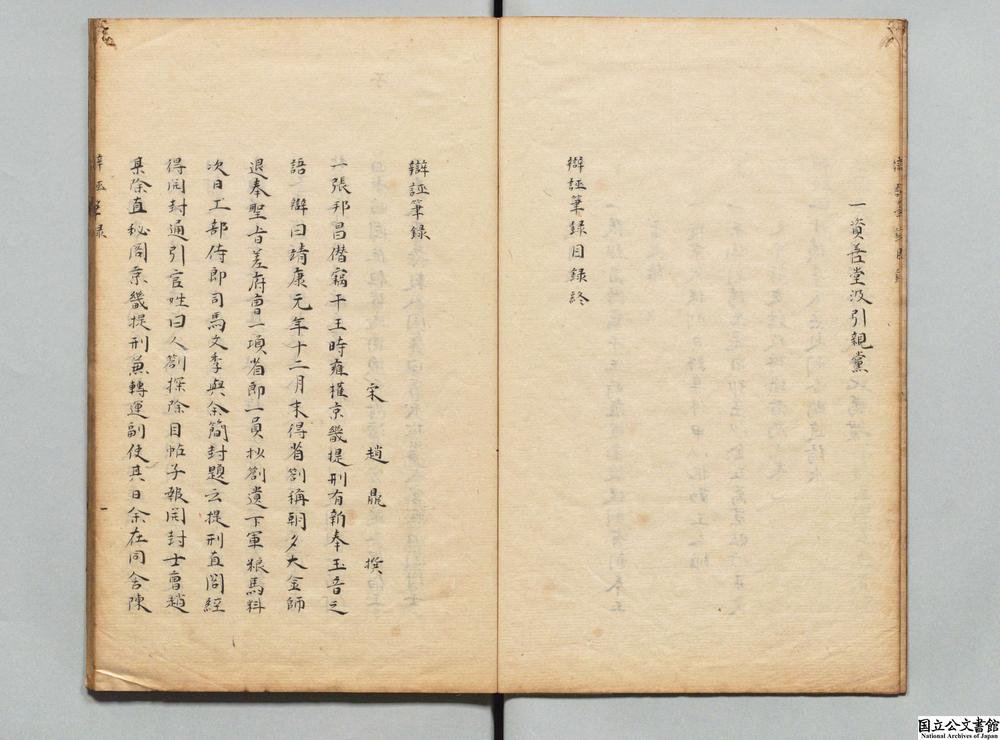 一資善堂汲引親黨
辯誣筆録目録終
辯誣筆録
宋趙鼎撰
一張邦昌僭竊干王時雍權京畿提刑有新奉玉音之
語辯曰靖康元年十二月末得省劄稱朝夕大金師
退奉聖旨差府曹一項省郎一員抄劄遺下軍粮馬料
次日工部侍郎司馬文季與余簡封題云提刑直閣經
得開封通引官姓曰人劄探除目帖子報開封士曹趙
某除直秘閣京畿提刑兼轉運副使其日余在同舍陳
一
国立公文書館
National Archives of Japan